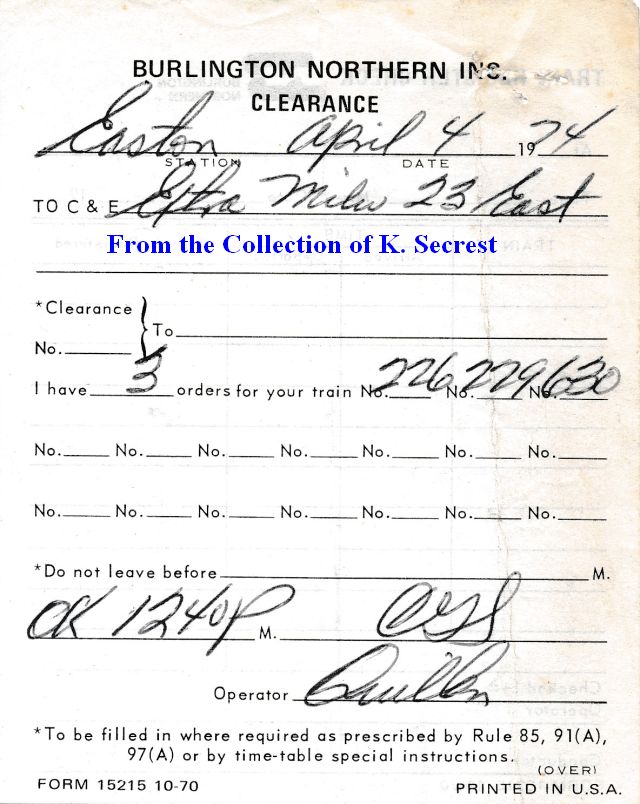 BURLINGTON NORTHERN INC.
CLEARANCE
Easton April 4 1974
STATION DATE
TO C & E Extra Milw 23 East
From the Collection of K. Secrest
*Clearance
No. To
I have 3 orders for your train No. 226 No. 229 No. 630
No. No. No. No. No. No. No.
No. No. No. No. No. No. No.
*Do not leave before M.
OK 1240 P M.
Operator
*To be filled in where required as prescribed by Rule 85, 91(A),
97(A) or by time-table special instructions.
(OVER)
FORM 15215 10-70 PRINTED IN U.S.A.